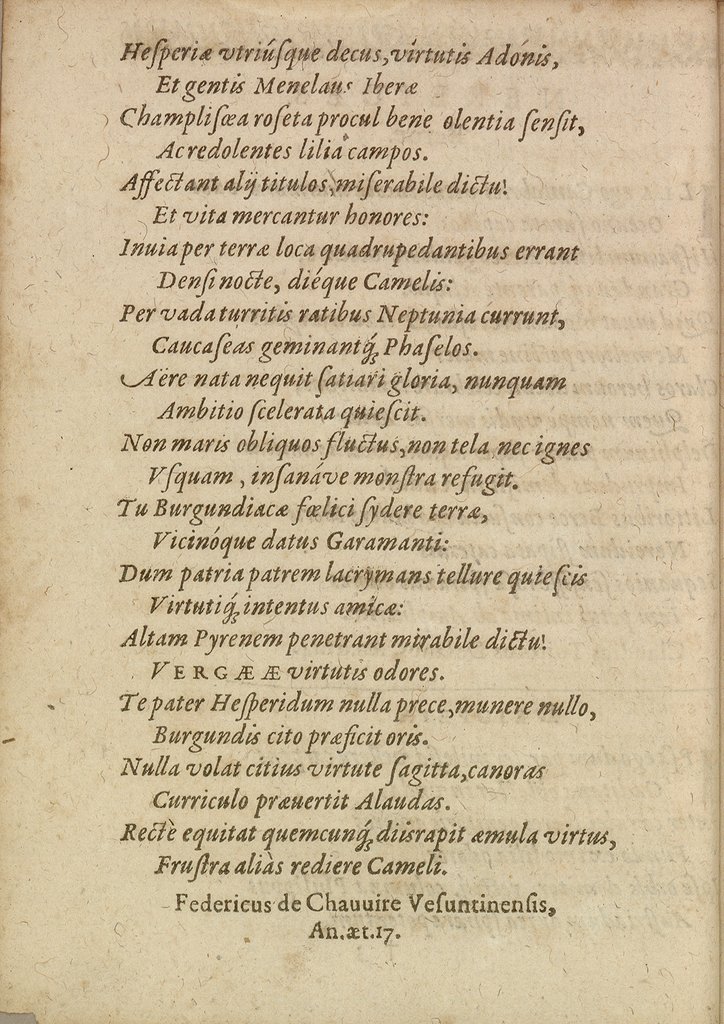 Heſperiæ vtriúſque decus, virtutis Adónis,
Et gentis Menelaus Iberæ
Champliſœa roſeta procul bene olentia ſenſit,
Ac redolentes lilia campos.
Affectant alij titulos, miſerabile dictu!
Et vita mercantur honores:
Inuia per terræ loca quadrupedantibus errant
Denſi nocte, diéque Camelis:
Per vada turritis ratibus Neptunia currunt,
Caucaſeas geminantq́; Phaſelos.
Aëre nata nequit ſatiari gloria, nunquam
Ambitio ſcelerata quieſcit.
Non maris obliquos fluctus, non tela nec ignes
Vſquam, inſanáve monſtra refugit.
Tu Burgundiacæ fœlici ſydere terræ,
Vicinóque datus Garamanti:
Dum patria patrem lacrymans tellure quieſcis
Virtutiq́; intentus amicæ:
Altam Pyrenem penetrant mirabile dictu!
VERGÆÆ virtutis odores.
Te pater Heſperidum nulla prece, munere nullo,
Burgundis cito præficit oris.
Nulla volat citius virtute ſagitta, canoras
Curriculo præuertit Alaudas.
Rectè equitat quemcunq́; diis rapit æmula virtus,
Fruſtra aliàs rediere Cameli.
Federicus de Chauuire Veſuntinenſis,
An. æt. 17.